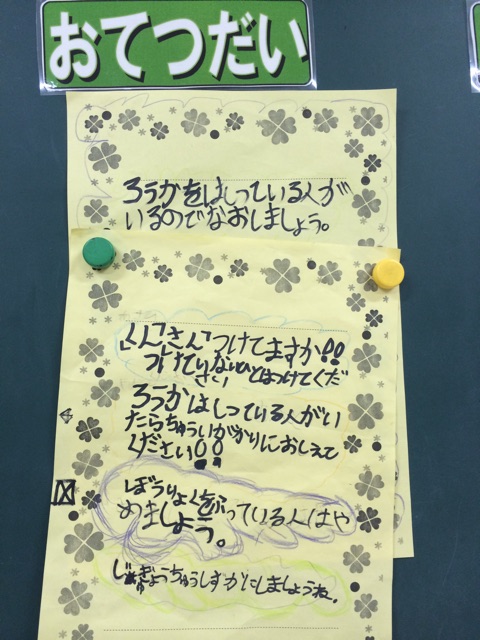 おてつだい
ろうかをはしっている人が
いるのでなおしましょう。
「くん」「さん」つけてますか!!
つけていないひとはつけてくだ
さい
ろうかはしっている人がい
たらちゅういがかりにおしえて
ください!!
ぼうりょくをふっている人はや
めましょう。
じゅぎょうちゅうしずかにしましょうね。